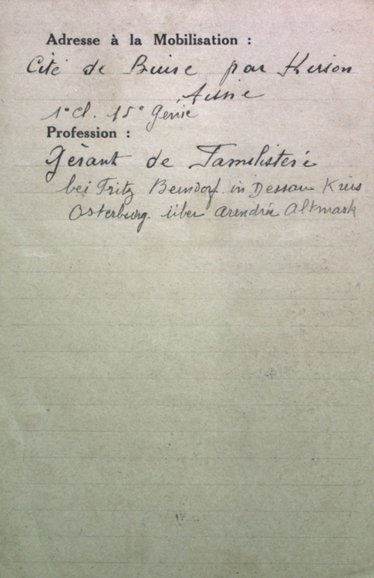 Adresse à la Mobilisation :
Cité de Buire par Hirson
Aisne
1° cl. 15° Génie
Profession :
Gérant de Familistère
bei Fritz Bendorf in Dessau Kreis
Osterburg über Arendsee Altmark